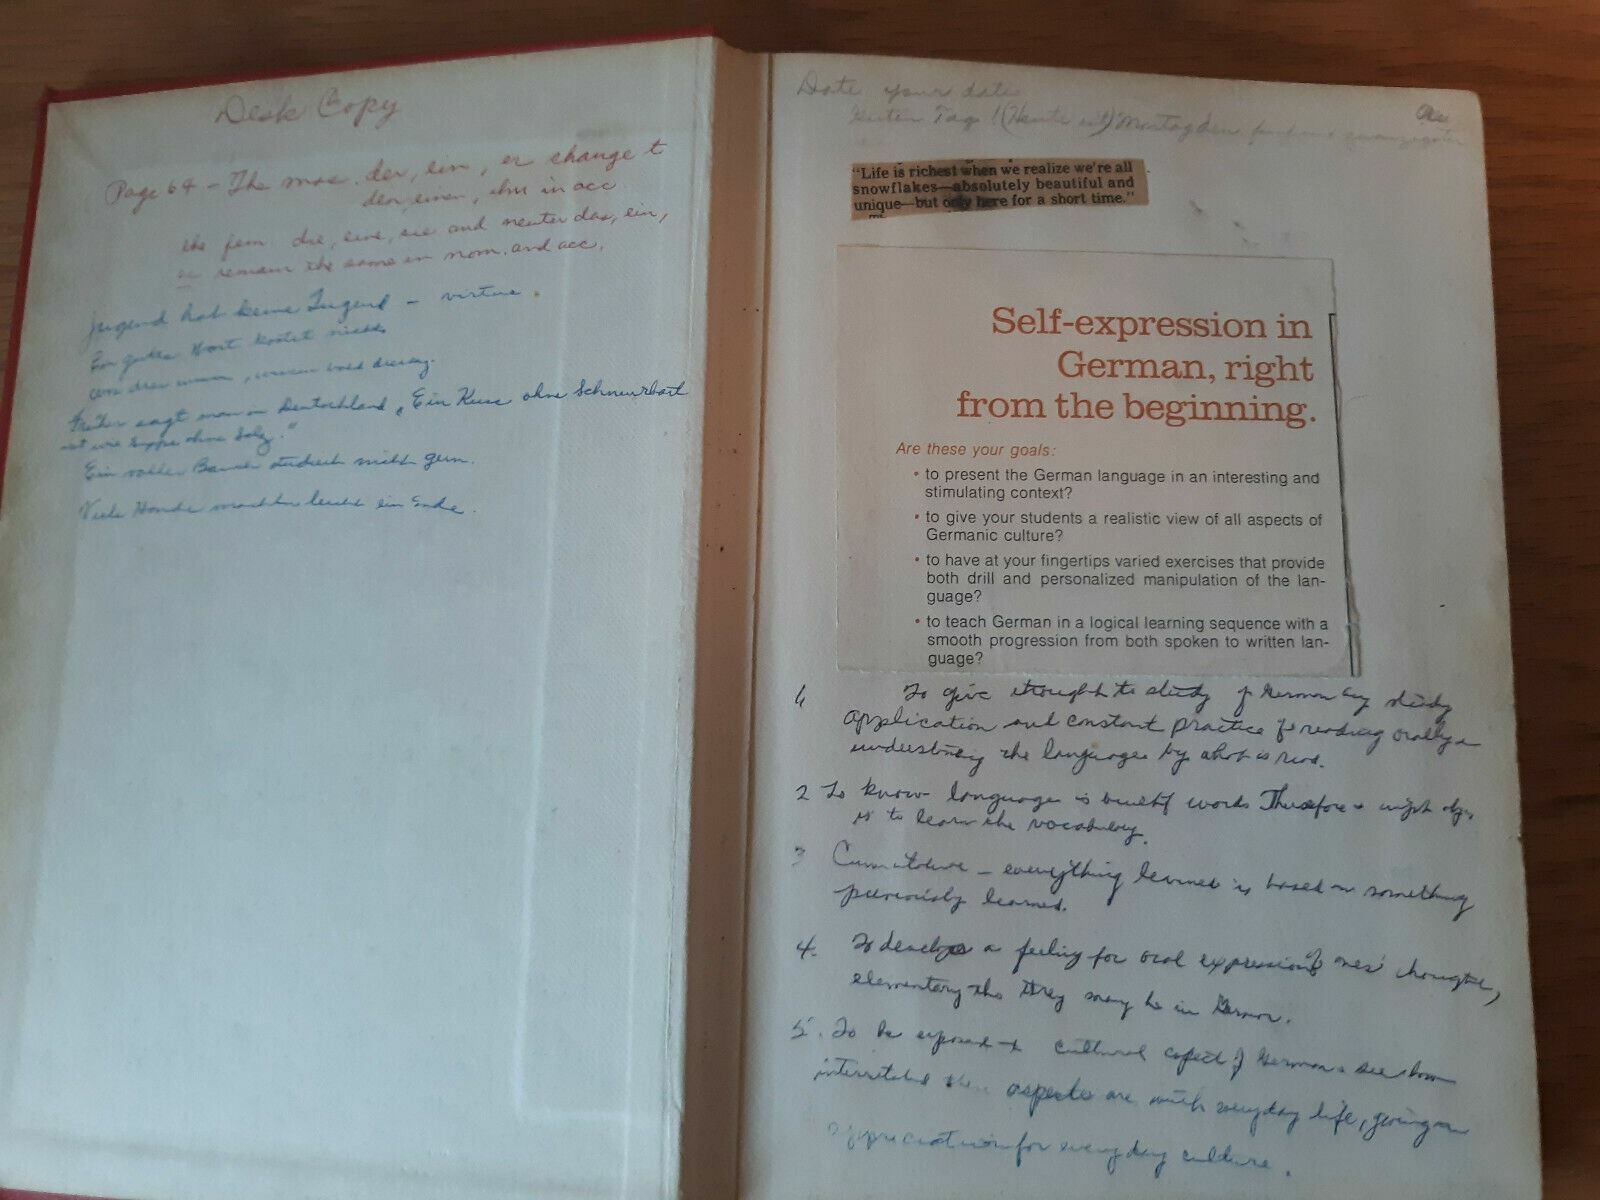 Desk Copy
Page 64 - The mas. der, ein, er change t
den, einen, ihn in acc
the fem die, eine, sie and neuter das, ein,
es remain the same in nom. and acc.
Jugend hat keine Tugend - virtue.
Ein gutes Wort kostet nichts
Früher sagt man in Deutschland, "Ein Kuss ohne Schnurrbart
ist wie Suppe ohne Salz."
Ein voller Bauch studiert nicht gern.
Viele Hände machen leicht ein Ende.
Date your date
Guten Tag! (Heute ist) Montag den
"Life is richest when we realize we're all
snowflakes—absolutely beautiful and
unique—but only here for a short time."
Self-expression in
German, right
from the beginning.
Are these your goals:
• to present the German language in an interesting and
stimulating context?
• to give your students a realistic view of all aspects of
Germanic culture?
• to have at your fingertips varied exercises that provide
both drill and personalized manipulation of the lan-
guage?
• to teach German in a logical learning sequence with a
smooth progression from both spoken to written lan-
guage?
1 To give thought to study of German by study
application and constant practice of reading orally &
understanding the languages by what is read.
2 To know language is built of words Therefore
is to learn the vocabulary.
3 Cumulative - everything learned is based on something
previously learned.
4. To develop a feeling for oral expression of ones' thoughts,
elementary tho they may be in German.
5. To be exposed to cultural aspect of German & see how
interrelated these aspects are with everyday life, giving an
appreciation for everyday culture.